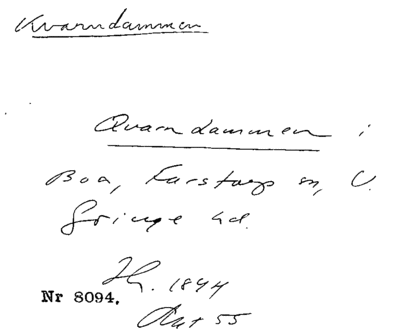 Kvarndammen
Qvarndammen i
Boa, Farstorp sn, V.
Göinge hd.
Jh. 1844
Nr 8094.
Akt 55